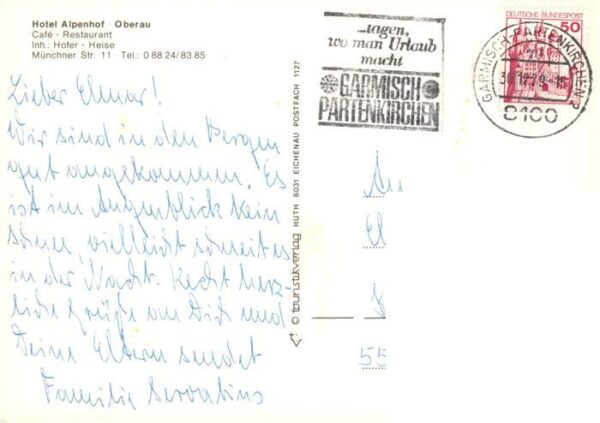 Hotel Alpenhof Oberau
Café - Restaurant
Inh.: Hofer - Heise
Münchner Str. 11 · Tel.: 0 88 24/83 85
...tagen,
wo man Urlaub
macht
GARMISCH
PARTENKIRCHEN
DEUTSCHE BUNDESPOST
50
GARMISCH-PARTENKIRCHEN 2
8100
Lieber Elmar!
Wir sind in den Bergen
gut angekommen. Es
ist im Augenblick kein
Schnee, vielleicht schneit es
in der Nacht. Recht herz-
liche Grüße an Dich und
Deine Eltern sendet
Familie
© touristikverlag HUTH 8031 EICHENAU POSTFACH 1127
An
El
55